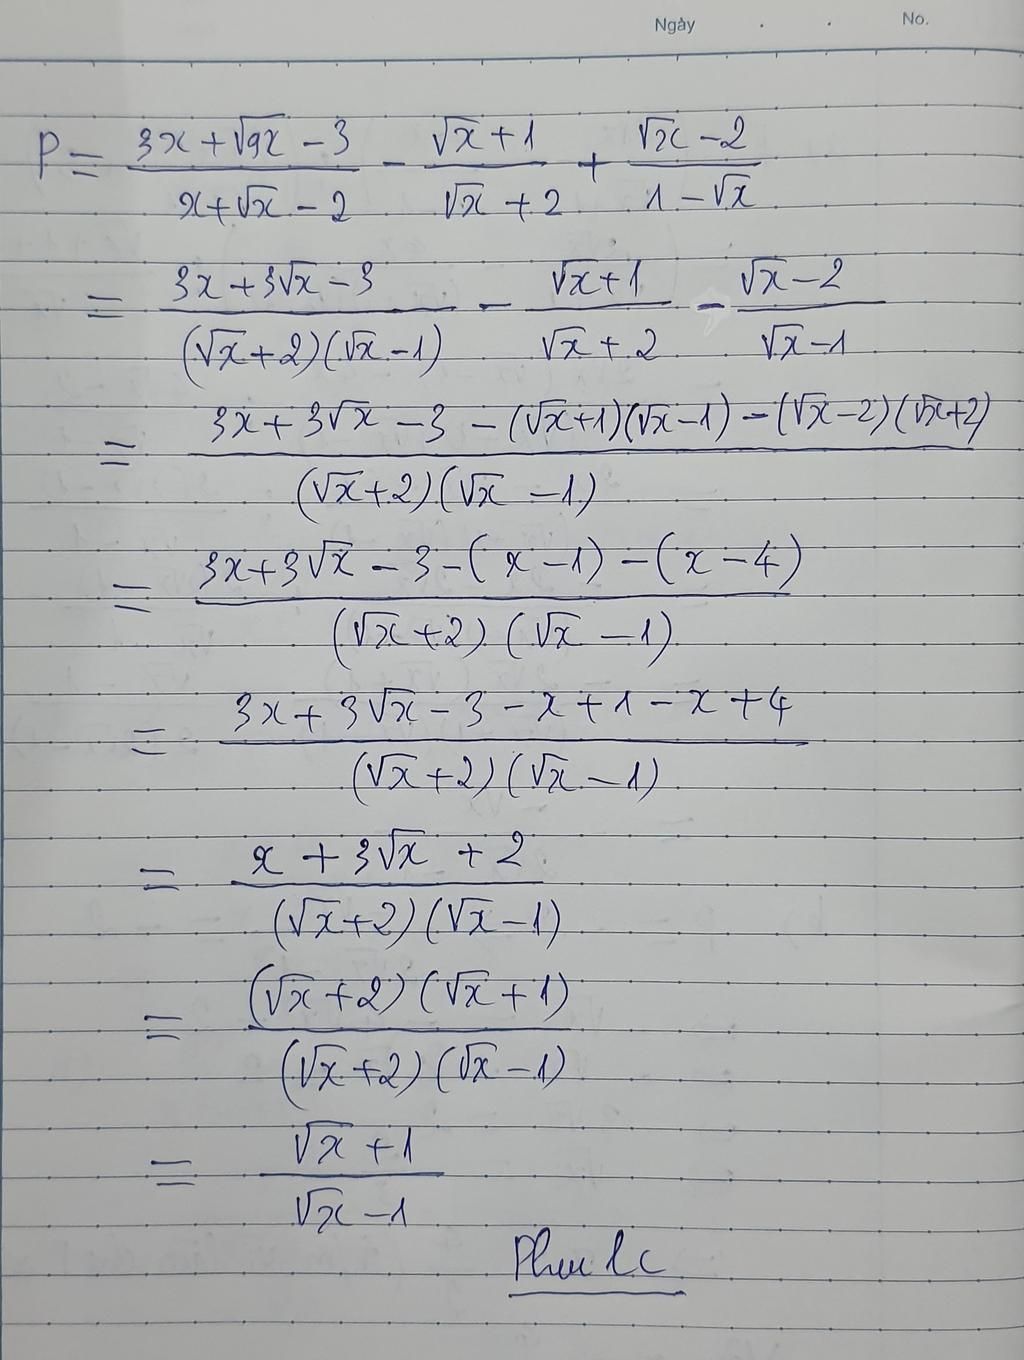 Ngày . . No.
P = (3x + √9x - 3)/(x + √x - 2) - (√x + 1)/(√x + 2) + (√x - 2)/(1 - √x)
= (3x + 3√x - 3)/((√x + 2)(√x - 1)) - (√x + 1)/(√x + 2) - (√x - 2)/(√x - 1)
= (3x + 3√x - 3 - (√x + 1)(√x - 1) - (√x - 2)(√x + 2))/((√x + 2)(√x - 1))
= (3x + 3√x - 3 - (x - 1) - (x - 4))/((√x + 2)(√x - 1))
= (3x + 3√x - 3 - x + 1 - x + 4)/((√x + 2)(√x - 1))
= (x + 3√x + 2)/((√x + 2)(√x - 1))
= ((√x + 2)(√x + 1))/((√x + 2)(√x - 1))
= (√x + 1)/(√x - 1)